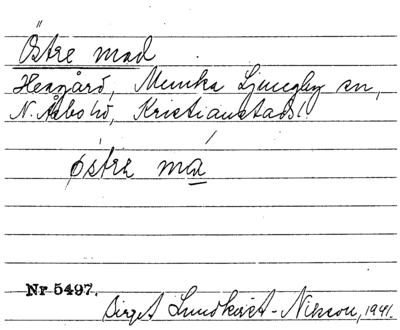 Östre mad
Hexgård, Munka Ljungby sn,
N. Åsbo hd, Kristianstads l.
östre ma
Nr 5497.
Birgit Lundkvist-Nilsson, 1941.